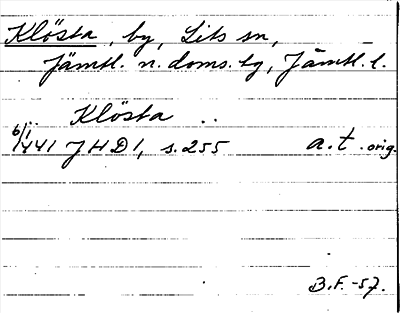 Klösta, by, Lits sn,
Jämtl. n. doms. tg, Jämtl. l.
Klösta ..
6/1
1441 JHD1, s. 255 a. t. orig.
B.F. -57.